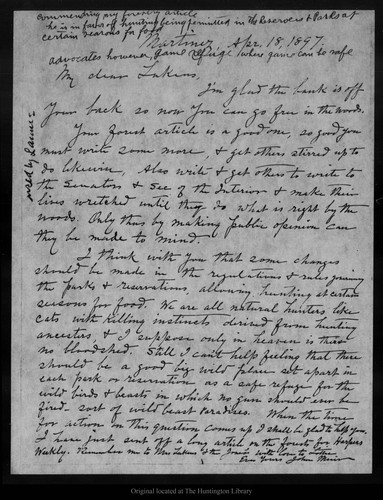 commending my forestry article
he is in favor of hunting being permitted in the Reserves & Parks at
certain seasons for food
Martinez Apr. 18, 1897.
advocates however, Game Refuge where game can be safe
My dear Lukens,
I'm glad the bank is off
your back so now you can go free in the woods.
Your forest article is a good one, so good you
must write some more & get others stirred up to
do likewise. Also write & get others to write to
the Senators & Sec of the Interior & make their
lives wretched until they do what is right by the
woods. Only thus by making public opinion can
they be made to mind.
I think with you that some changes
should be made in the regulations & rules
the parks & reservations, allowing hunting at certain
seasons for food. We are all natural hunters like
cats with killing instincts derived from hunting
ancestors, & I suppose only in heaven is there
no bloodshed. Still I can't help feeling that there
should be a good big wild place set apart in
each park or reservation as a safe refuge for the
wild birds & beasts in which no gun should ever be
fired. sort of wild beast Paradises. When the time
for action on this question comes up I shall be glad to help you.
I have just sent off a long article on the forests for Harpers
Weekly. Remember me to Mrs Lukens & the with love to
Ever Yours John Muir
Original located at The Huntington Library